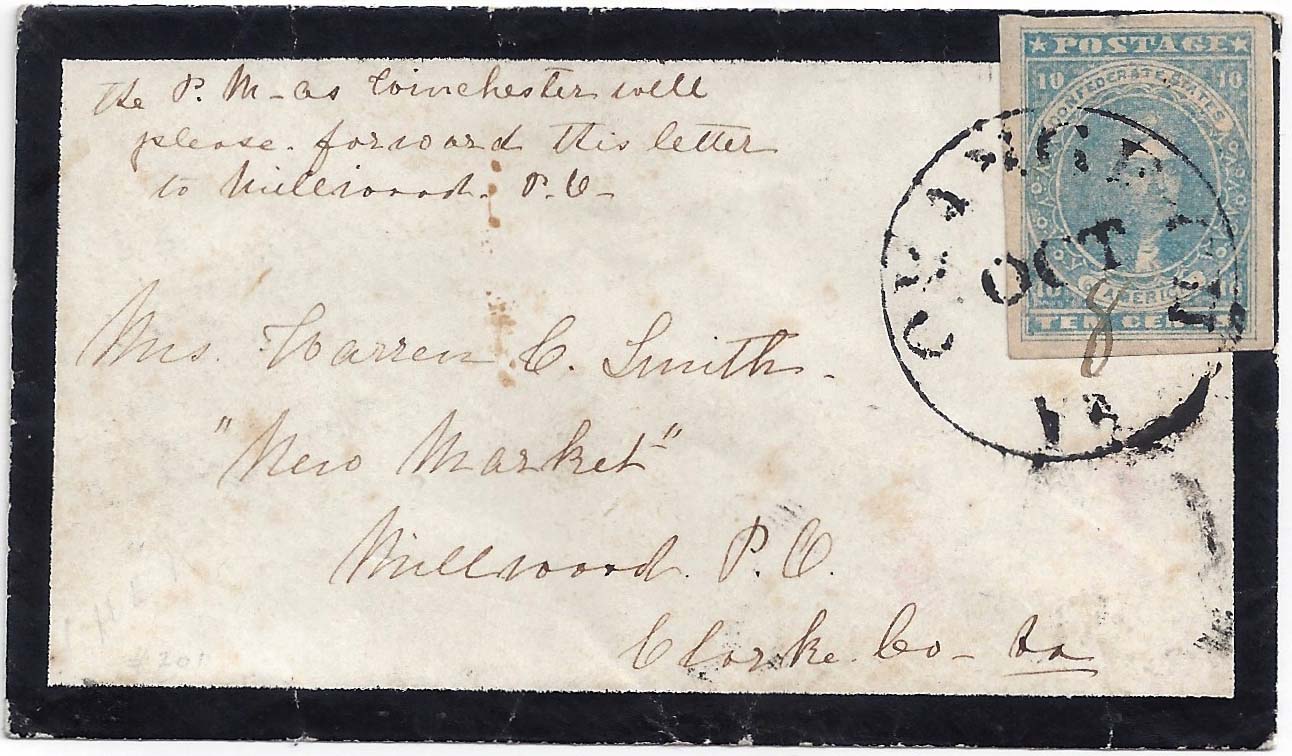 the P. M - as Winchester will
please. forward this letter
to Millwood. P. O -
★ POSTAGE ★
10 10
CONFEDERATE STATES
AMERICA
TEN CENTS
ORANGE C.H.
OCT
8
VA
Mrs Warren C. Smith -
"New Market"
Millwood. P. O.
Clarke. Co - Va
# 201